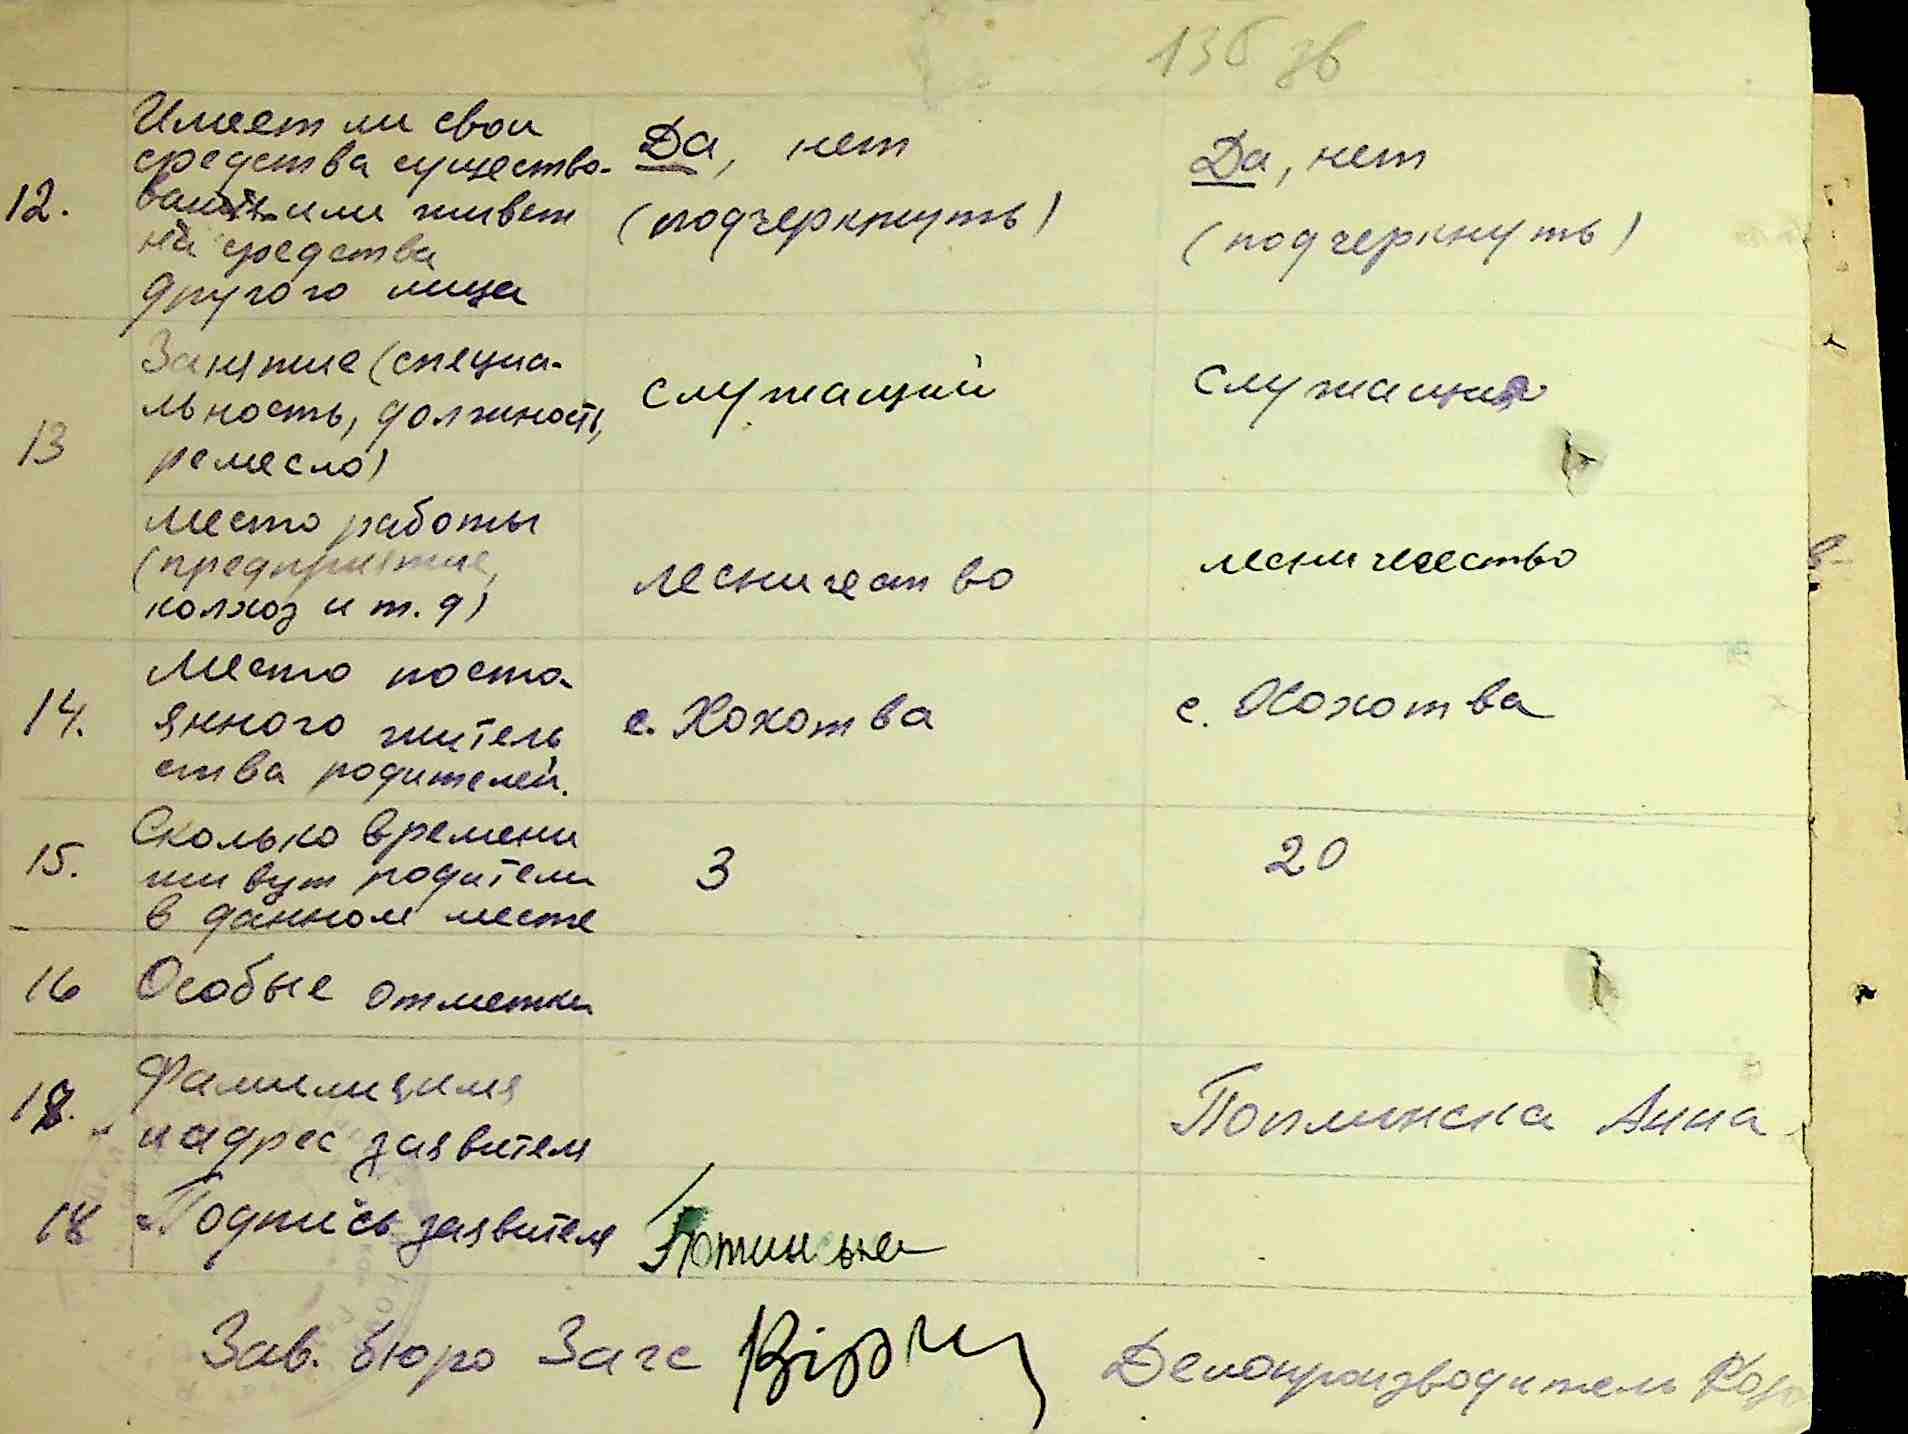 136 зв
12.
Имеет ли свои
средства существо-
вать или живет
на средства
другого лица
Да, нет
(подчеркнуть)
Да, нет
(подчеркнуть)
13
Занятие (специа-
льность, должность,
ремесло)
служащий
служащия
Место работы
(предприятие,
колхоз и т.д)
лесничество
лесничество
14.
Место посто-
янного житель
ства родителей.
с. Хохотва
с. Хохотва
15.
Сколько времени
живут родители
в данном месте
3
20
16
Особые отметки
17.
Фамилия имя
и адрес заявителя
Поплинска Анна
18
Подпись заявителя
Зав. бюро Загс
Делопроизводитель